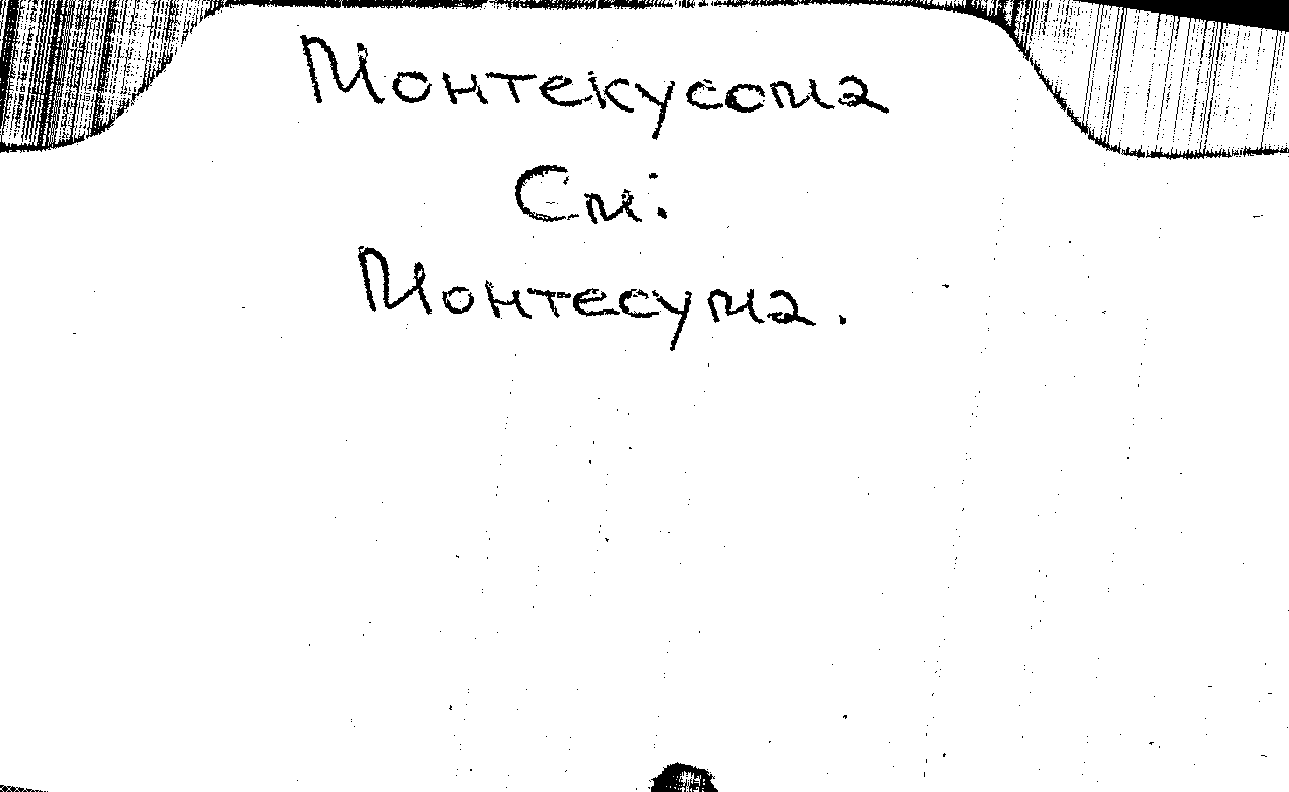 Монтекусома
См:
Монтесума.